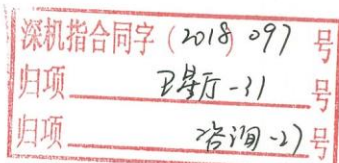 深机指合同字（2018）097号
归项 卫星厅-31号
归项 咨询-27号